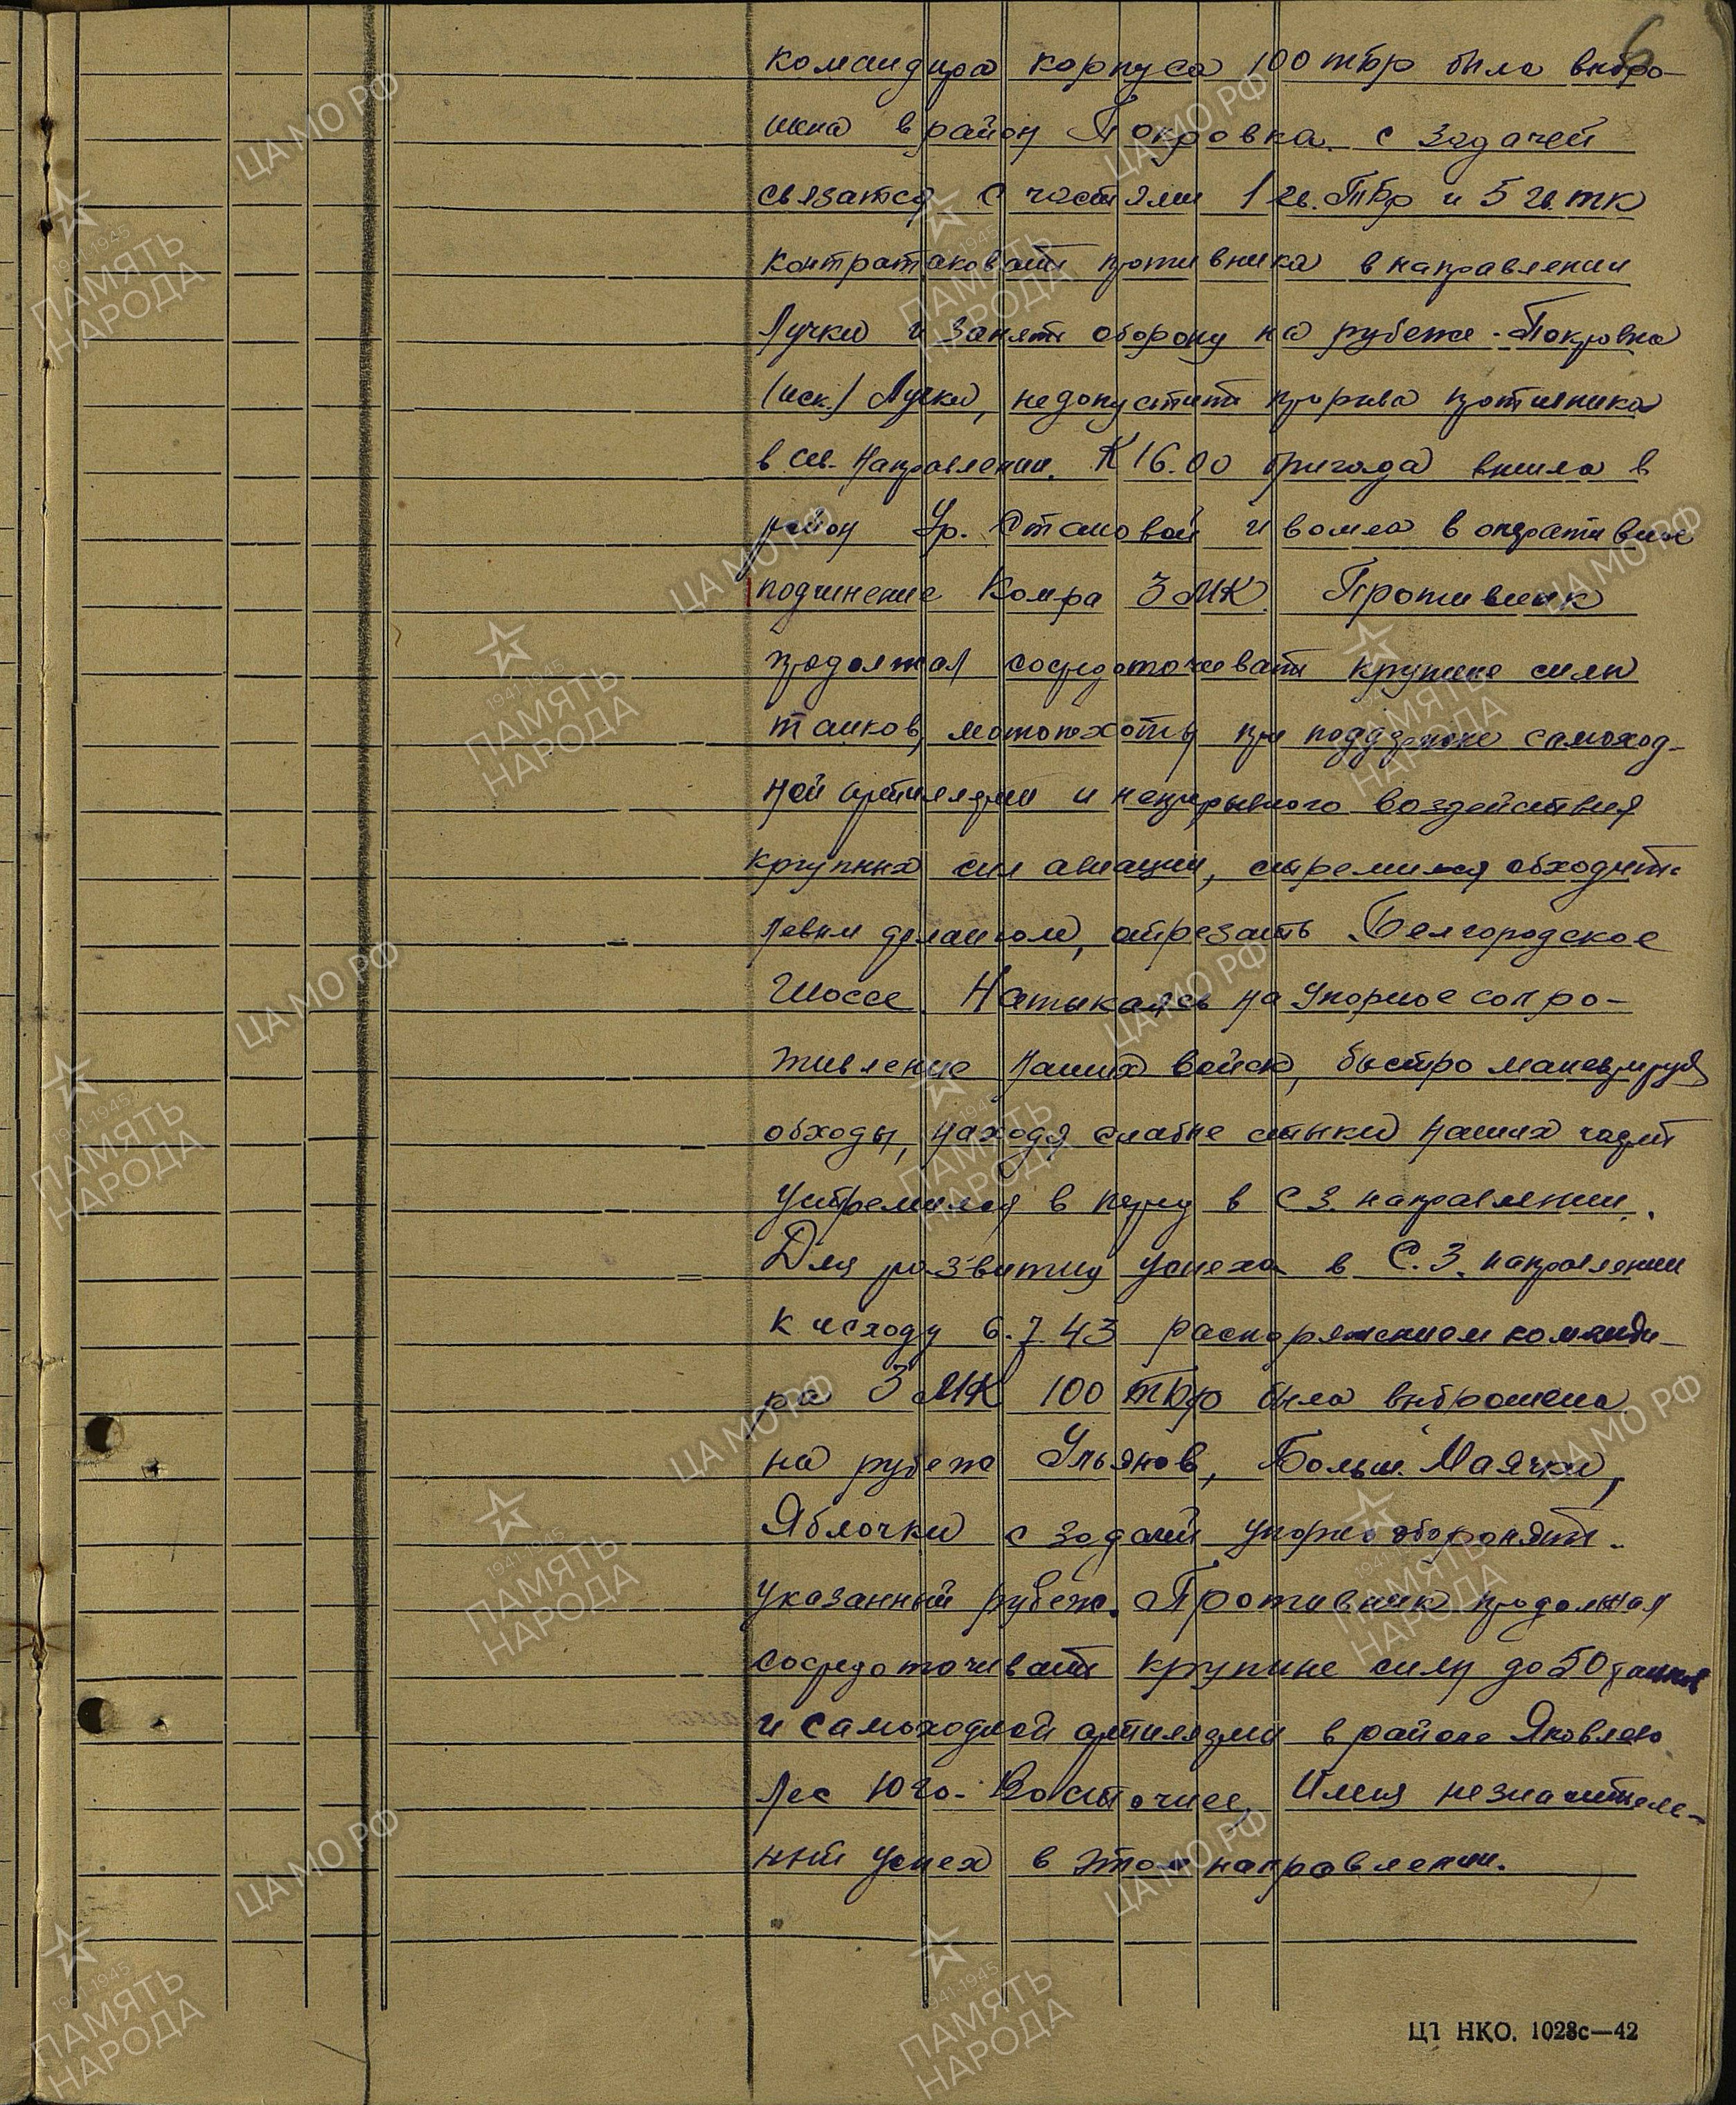 6
командира корпуса 100 тбр была выбро-
шена в район Покровка с задачей
связатся с частями 1 гв. ТБр и 5 гв. тк
контратаковать противника в направлении
Лучки и занять оборону на рубеже - Покровка
(иск.) Лучки, недопустить прорыва противника
в сев. направлении. К 16.00 бригада вышла в
район Ур. Становой и вошла в оперативное
подчинение Комра 3 МК. Противник
продолжал сосредоточевать крупные силы
танков, мотопехоты при поддержке самоход-
ной артиллерии и непрерывного воздействия
крупных сил авиации, стремился обходить
левым флангом, отрезать Белгородское
Шоссе. Натыкаясь на упорное сопро-
тивление наших войск, быстро маневрируя
обходы, находя слабые стыки наших частей
устремился в перед в СЗ. направлении.
Для развития успеха в С.З. направлении
к исходу 6.7.43 распоряжением команди-
ра 3 МК 100 ТБр была выброшена
на рубеж Ульянов, Больш. Маячки,
Яблочки с задачей упорно оборонять
указанный рубеж. Противник продолжал
сосредоточивать крупные силы до 50 танков
и самоходной артиллерии в районе Яковлево
лес Юго-Восточнее, Имея незначитель-
ный успех в этом направлении.
ЦТ НКО. 1028с—42
ЦА МО РФ
1941-1945
ПАМЯТЬ
НАРОДА